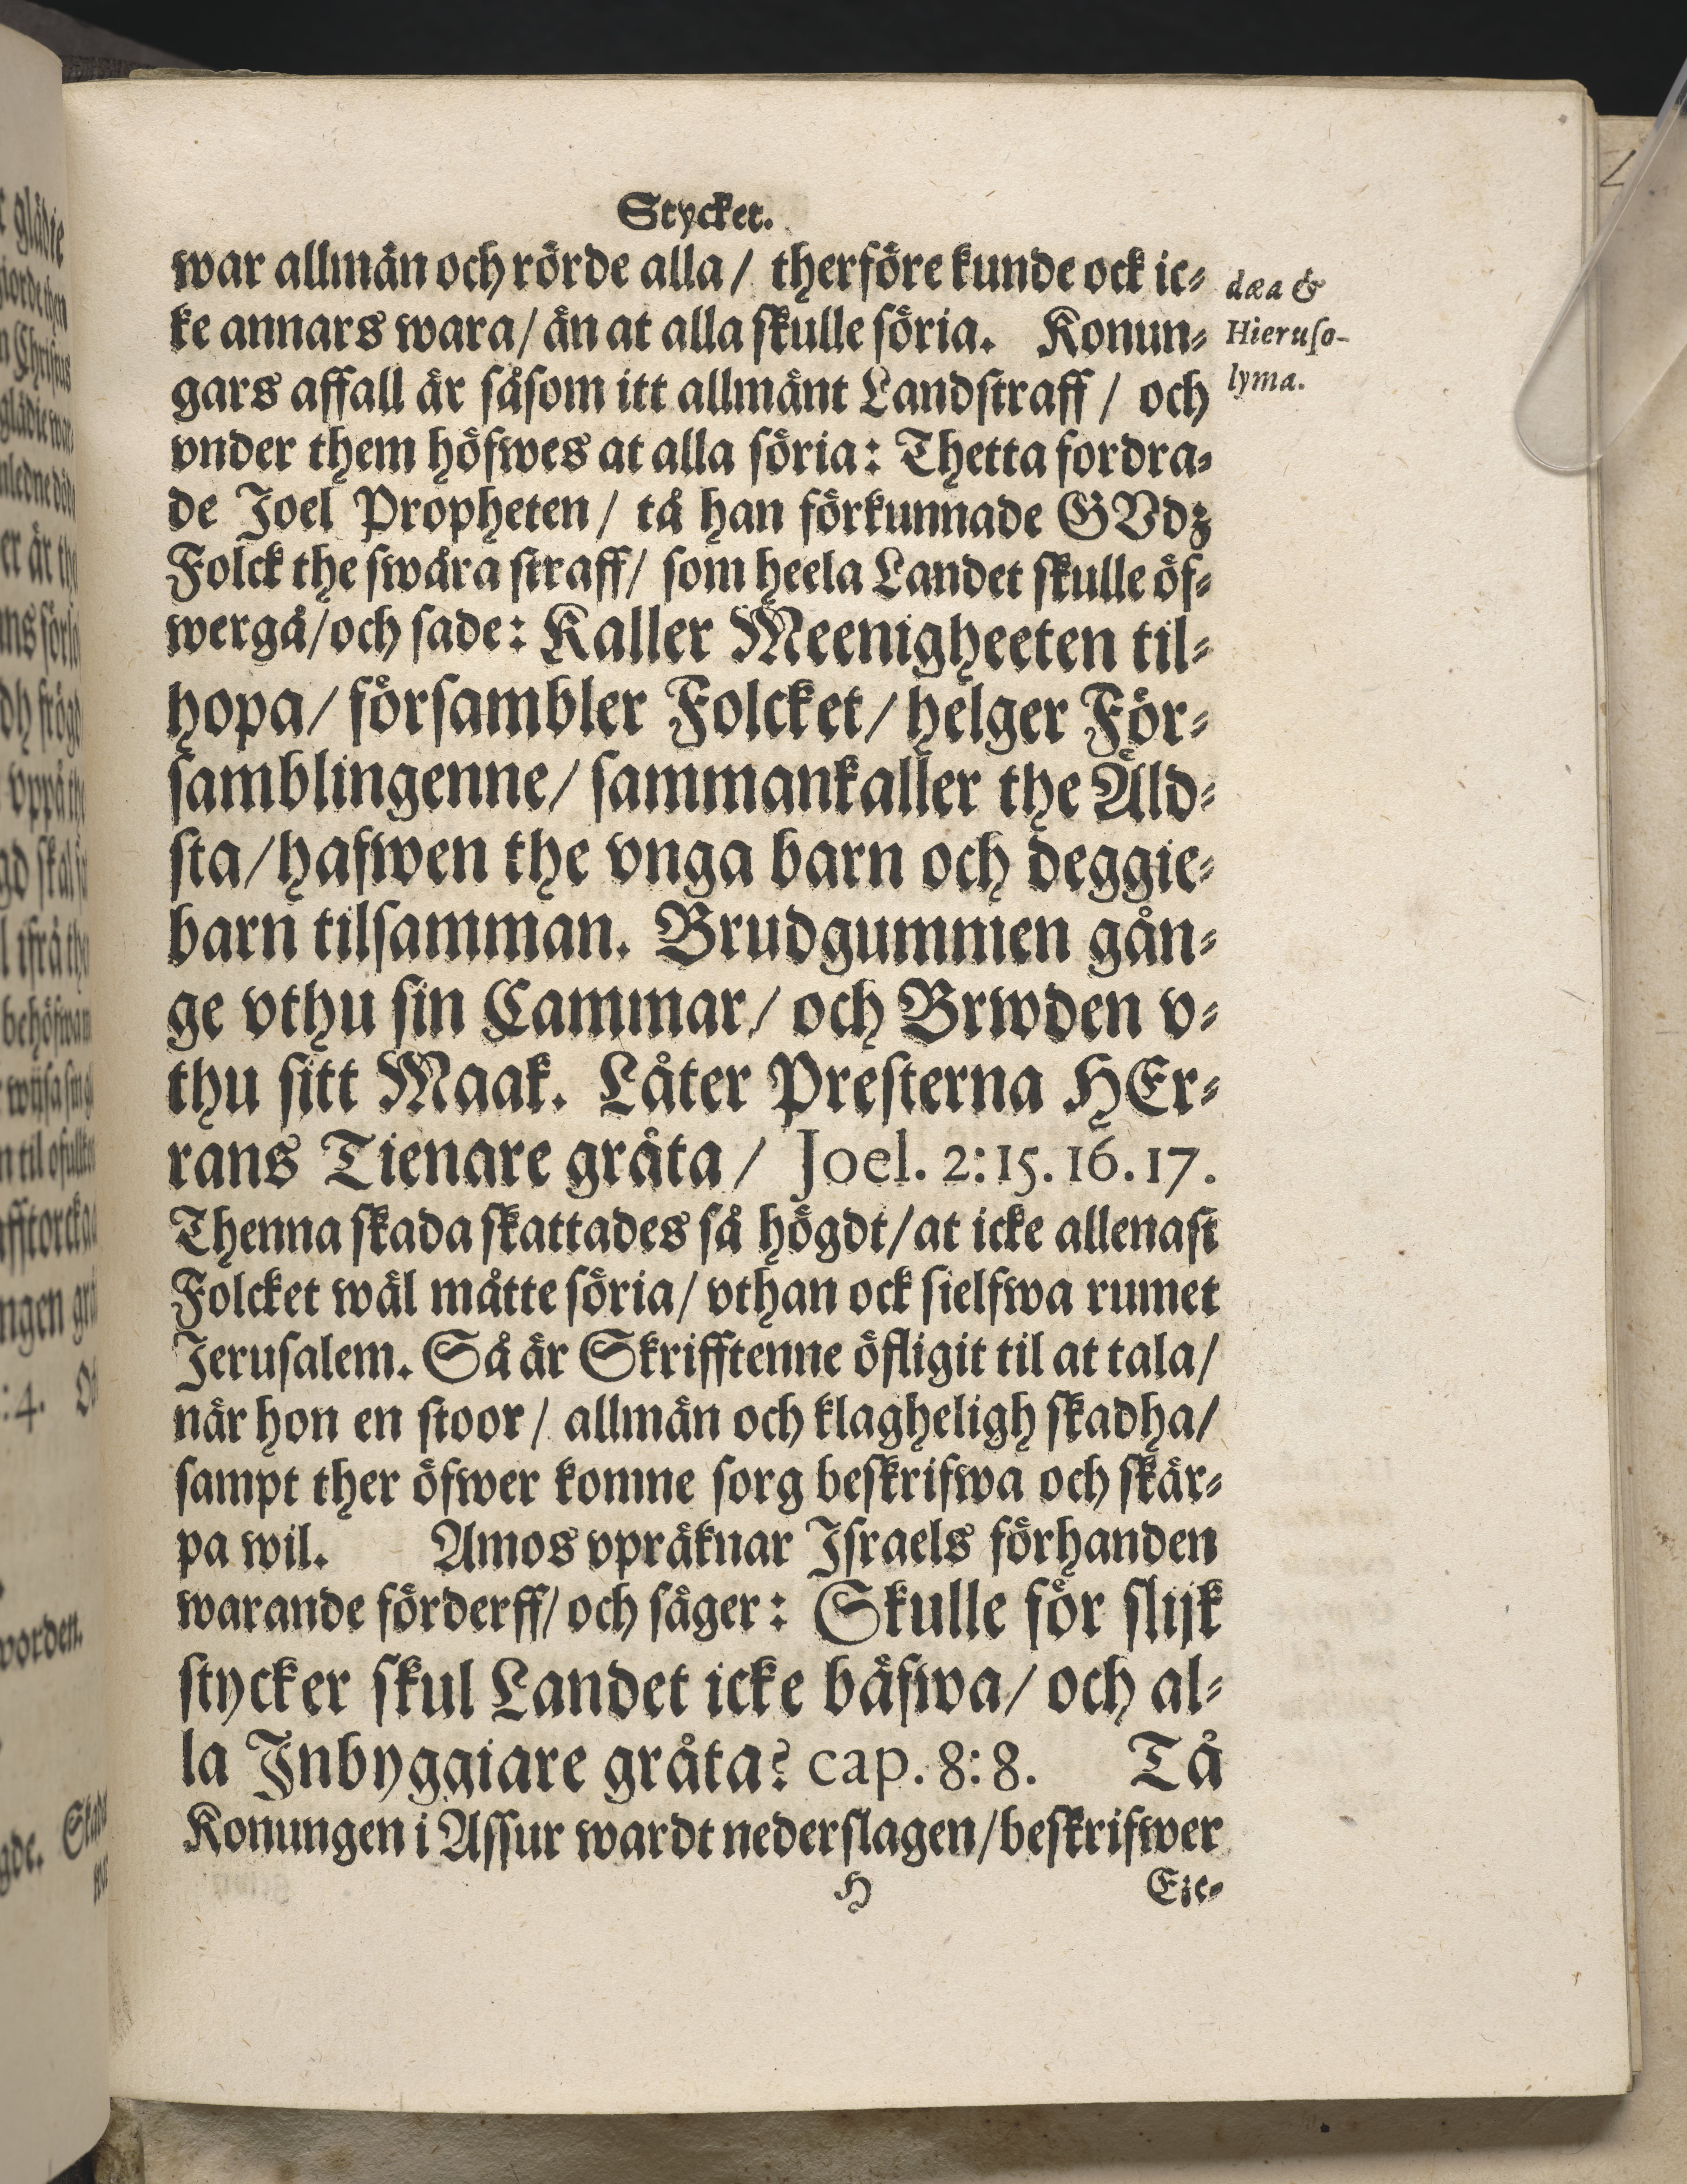 Stycket.
war allmän och rörde alla / therföre kunde ock ic-
ke annars wara / än at alla skulle söria. Konun-
gars affall är såsom itt allmänt Landstraff / och
vnder them höfwes at alla söria: Thetta fordra-
de Joel Propheten / tå han förkunnade GVdz
Folck the swåra straff / som heela Landet skulle öf-
wergå / och sade: Kaller Meenigheeten til-
hopa / försambler Folcket / helger För-
samblingenne / sammankaller the Äld-
sta / hafwen the vnga barn och deggie-
barn tilsamman. Brudgummen gån-
ge vthu sin Cammar / och Brwden v-
thu sitt Maak. Låter Presterna HEr-
rans Tienare gråta / Joel. 2:15.16.17.
Thenna skada skattades så högdt / at icke allenast
Folcket wäl måtte söria / vthan ock sielfwa rumet
Jerusalem. Så är Skrifftenne öfligit til at tala /
när hon en stoor / allmän och klagheligh skadha /
sampt ther öfwer komne sorg beskrifwa och skär-
pa wil. Amos vpräknar Israels förhanden
warande förderff / och säger: Skulle för slijk
stycker skul Landet icke bäfwa / och al-
la Inbyggiare gråta? cap. 8:8. Tå
Konungen i Assur wardt nederslagen / beskrifwer
H Eze-
dæa &
Hieruso-
lyma.